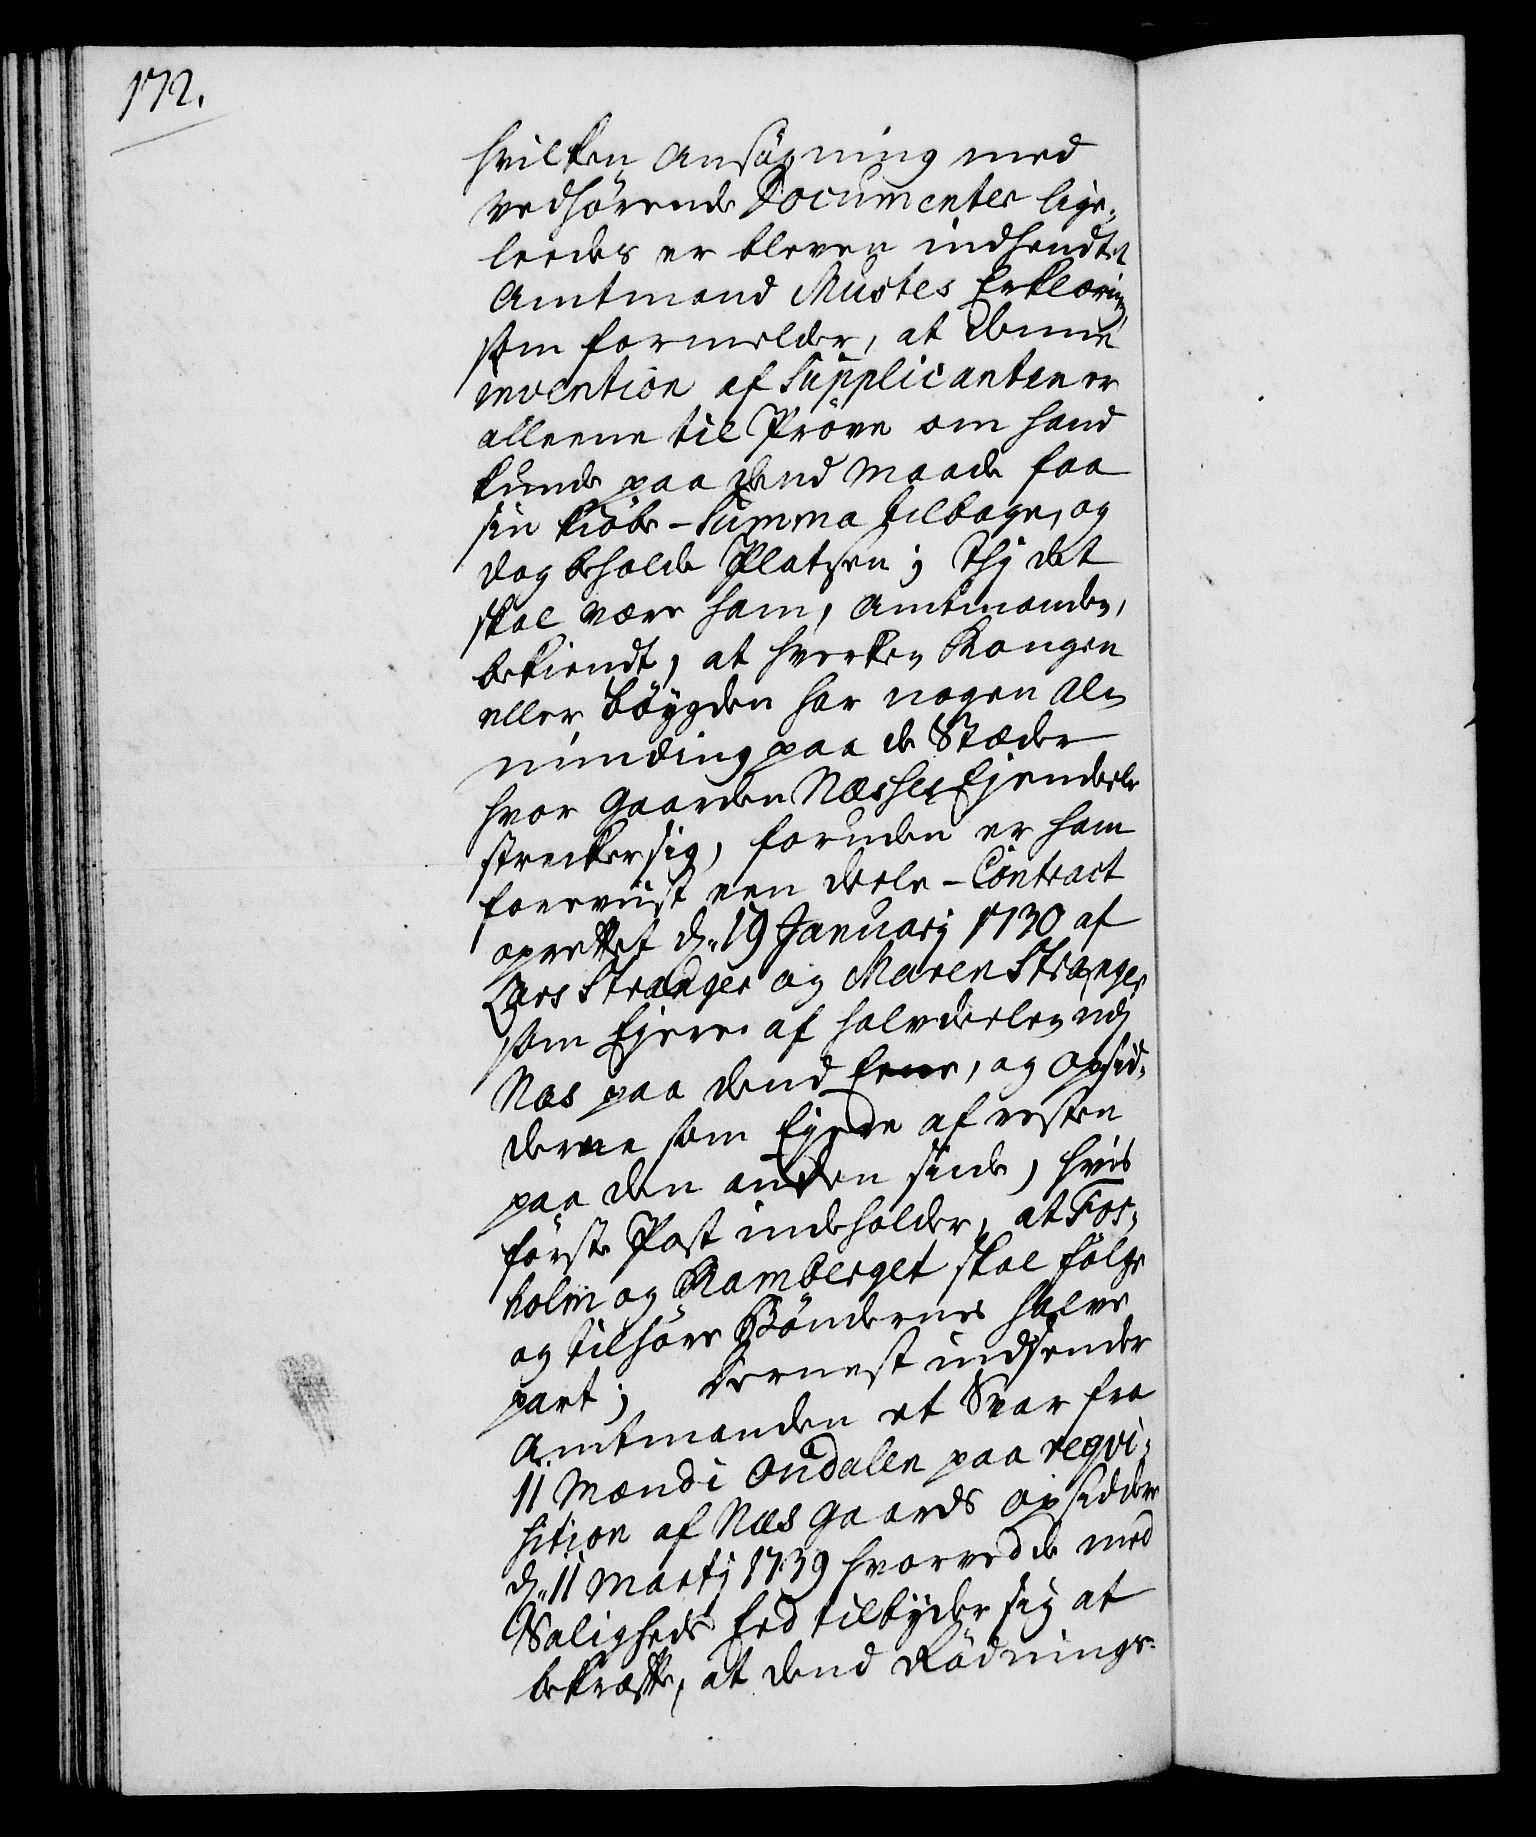 172.
hvilken Ansøgning med
vedhørende Documenter lige-
leedes er bleven indhendtet
Amtmand Mustes Erklæring,
som formelder, at denne
invention af Supplicanten er
alleene til Prøve om hand
kunde paa dend Maade faa
sin Kiøbe-Summa tilbage, og
dog beholde Platsen; Thj det
skal være ham, Amtmanden,
bekiendt, at hverken Kongen
eller Bøygden har nogen Al-
minding paa de Stæder
hvor Gaarden Næshes Ejendeele
strecker sig, foruden er ham
foreviist een Deele-Contract
oprettet d. 19 Januarij 1730 af
Lars Stranger og Maren Stranger
som Ejere af halvdeelen udj
Næs paa dend Eene, og Opsid-
derne som Ejere af resten
paa den anden siide, hvis
første Post indeholder, at Fos-
holm og Ramberget skal følge
og tilhøre Bøndernes halve
part; Dernest indsender
Amtmanden et Svar fra
11 Mænd i Ondalen paa reqvi-
sition af Næs Gaards Opsiddere
d. 11 Martij 1739 hvorved de med
Saligheds Eed tilbyder sig at
bekræfte, at dend Rødnings-